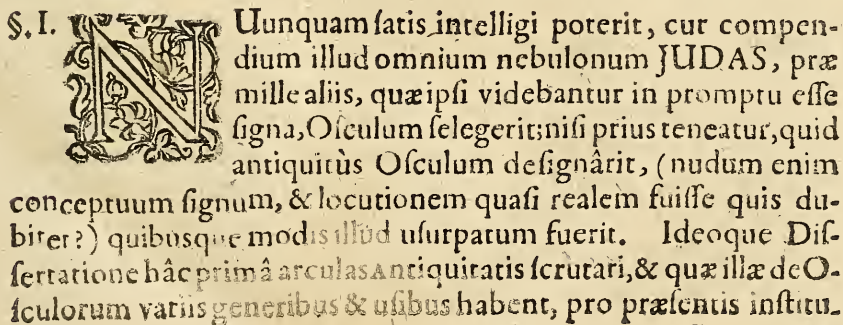 §. I. NUunquam ſatis intelligi poterit, cur compen-
dium illud omnium nebulonum JUDAS, præ
mille aliis, quæ ipſi videbantur in promptu eſſe
ſigna, Oſculum ſelegerit; niſi prius teneatur, quid
antiquitùs Oſculum deſignârit, (nudum enim
conceptuum ſignum, & locutionem quaſi realem fuiſſe quis du-
biter?) quibusque modis illud uſurpatum fuerit. Ideoque Diſ-
ſertatione hâc primâ arculas Antiquitatis ſcrutari, & quæ illæ de O-
ſculorum variis generibus & uſibus habent, pro præſentis inſtitu-